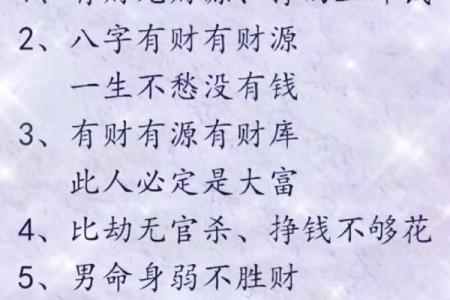 2、八字有财有财源
一生不愁没有钱
3、有财有源有财库
此人必定是大富
4、比劫无官杀、挣钱不够花
5、男命身弱不胜财